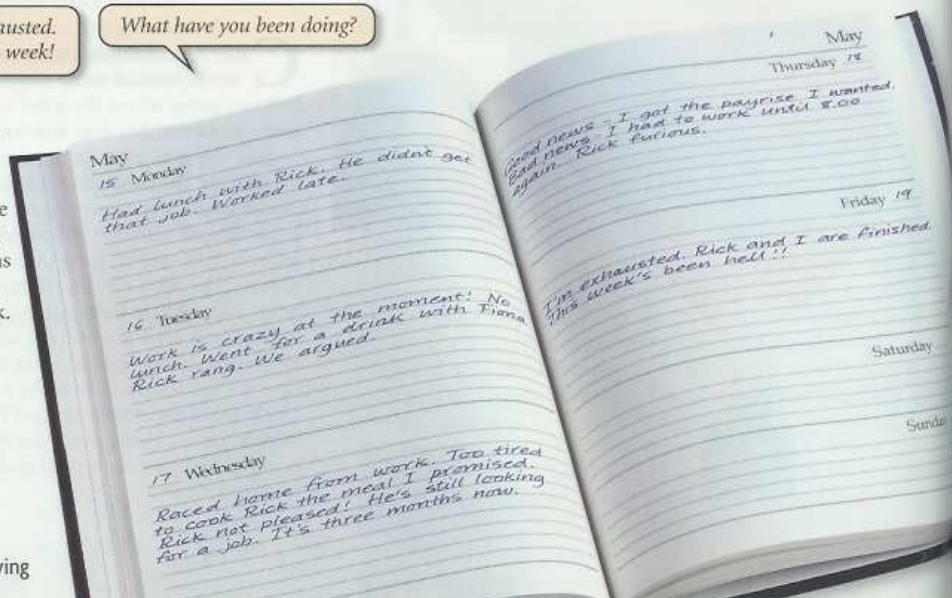 austed.
week!
What have you been doing?
May
15 Monday
Had lunch with Rick. He didn't get
that job. Worked late.
16 Tuesday
Work is crazy at the moment! No
lunch. Went for a drink with Fiona
Rick rang. We argued.
17 Wednesday
Raced home from work. Too tired
to cook Rick the meal I promised.
Rick not pleased! He's still looking
for a job. It's three months now.
May
Thursday 18
Good news - I got the payrise I wanted.
Bad news. I had to work until 8.00
again. Rick furious.
Friday 19
I'm exhausted. Rick and I are finished.
This week's been hell!!
Saturday
Sunda